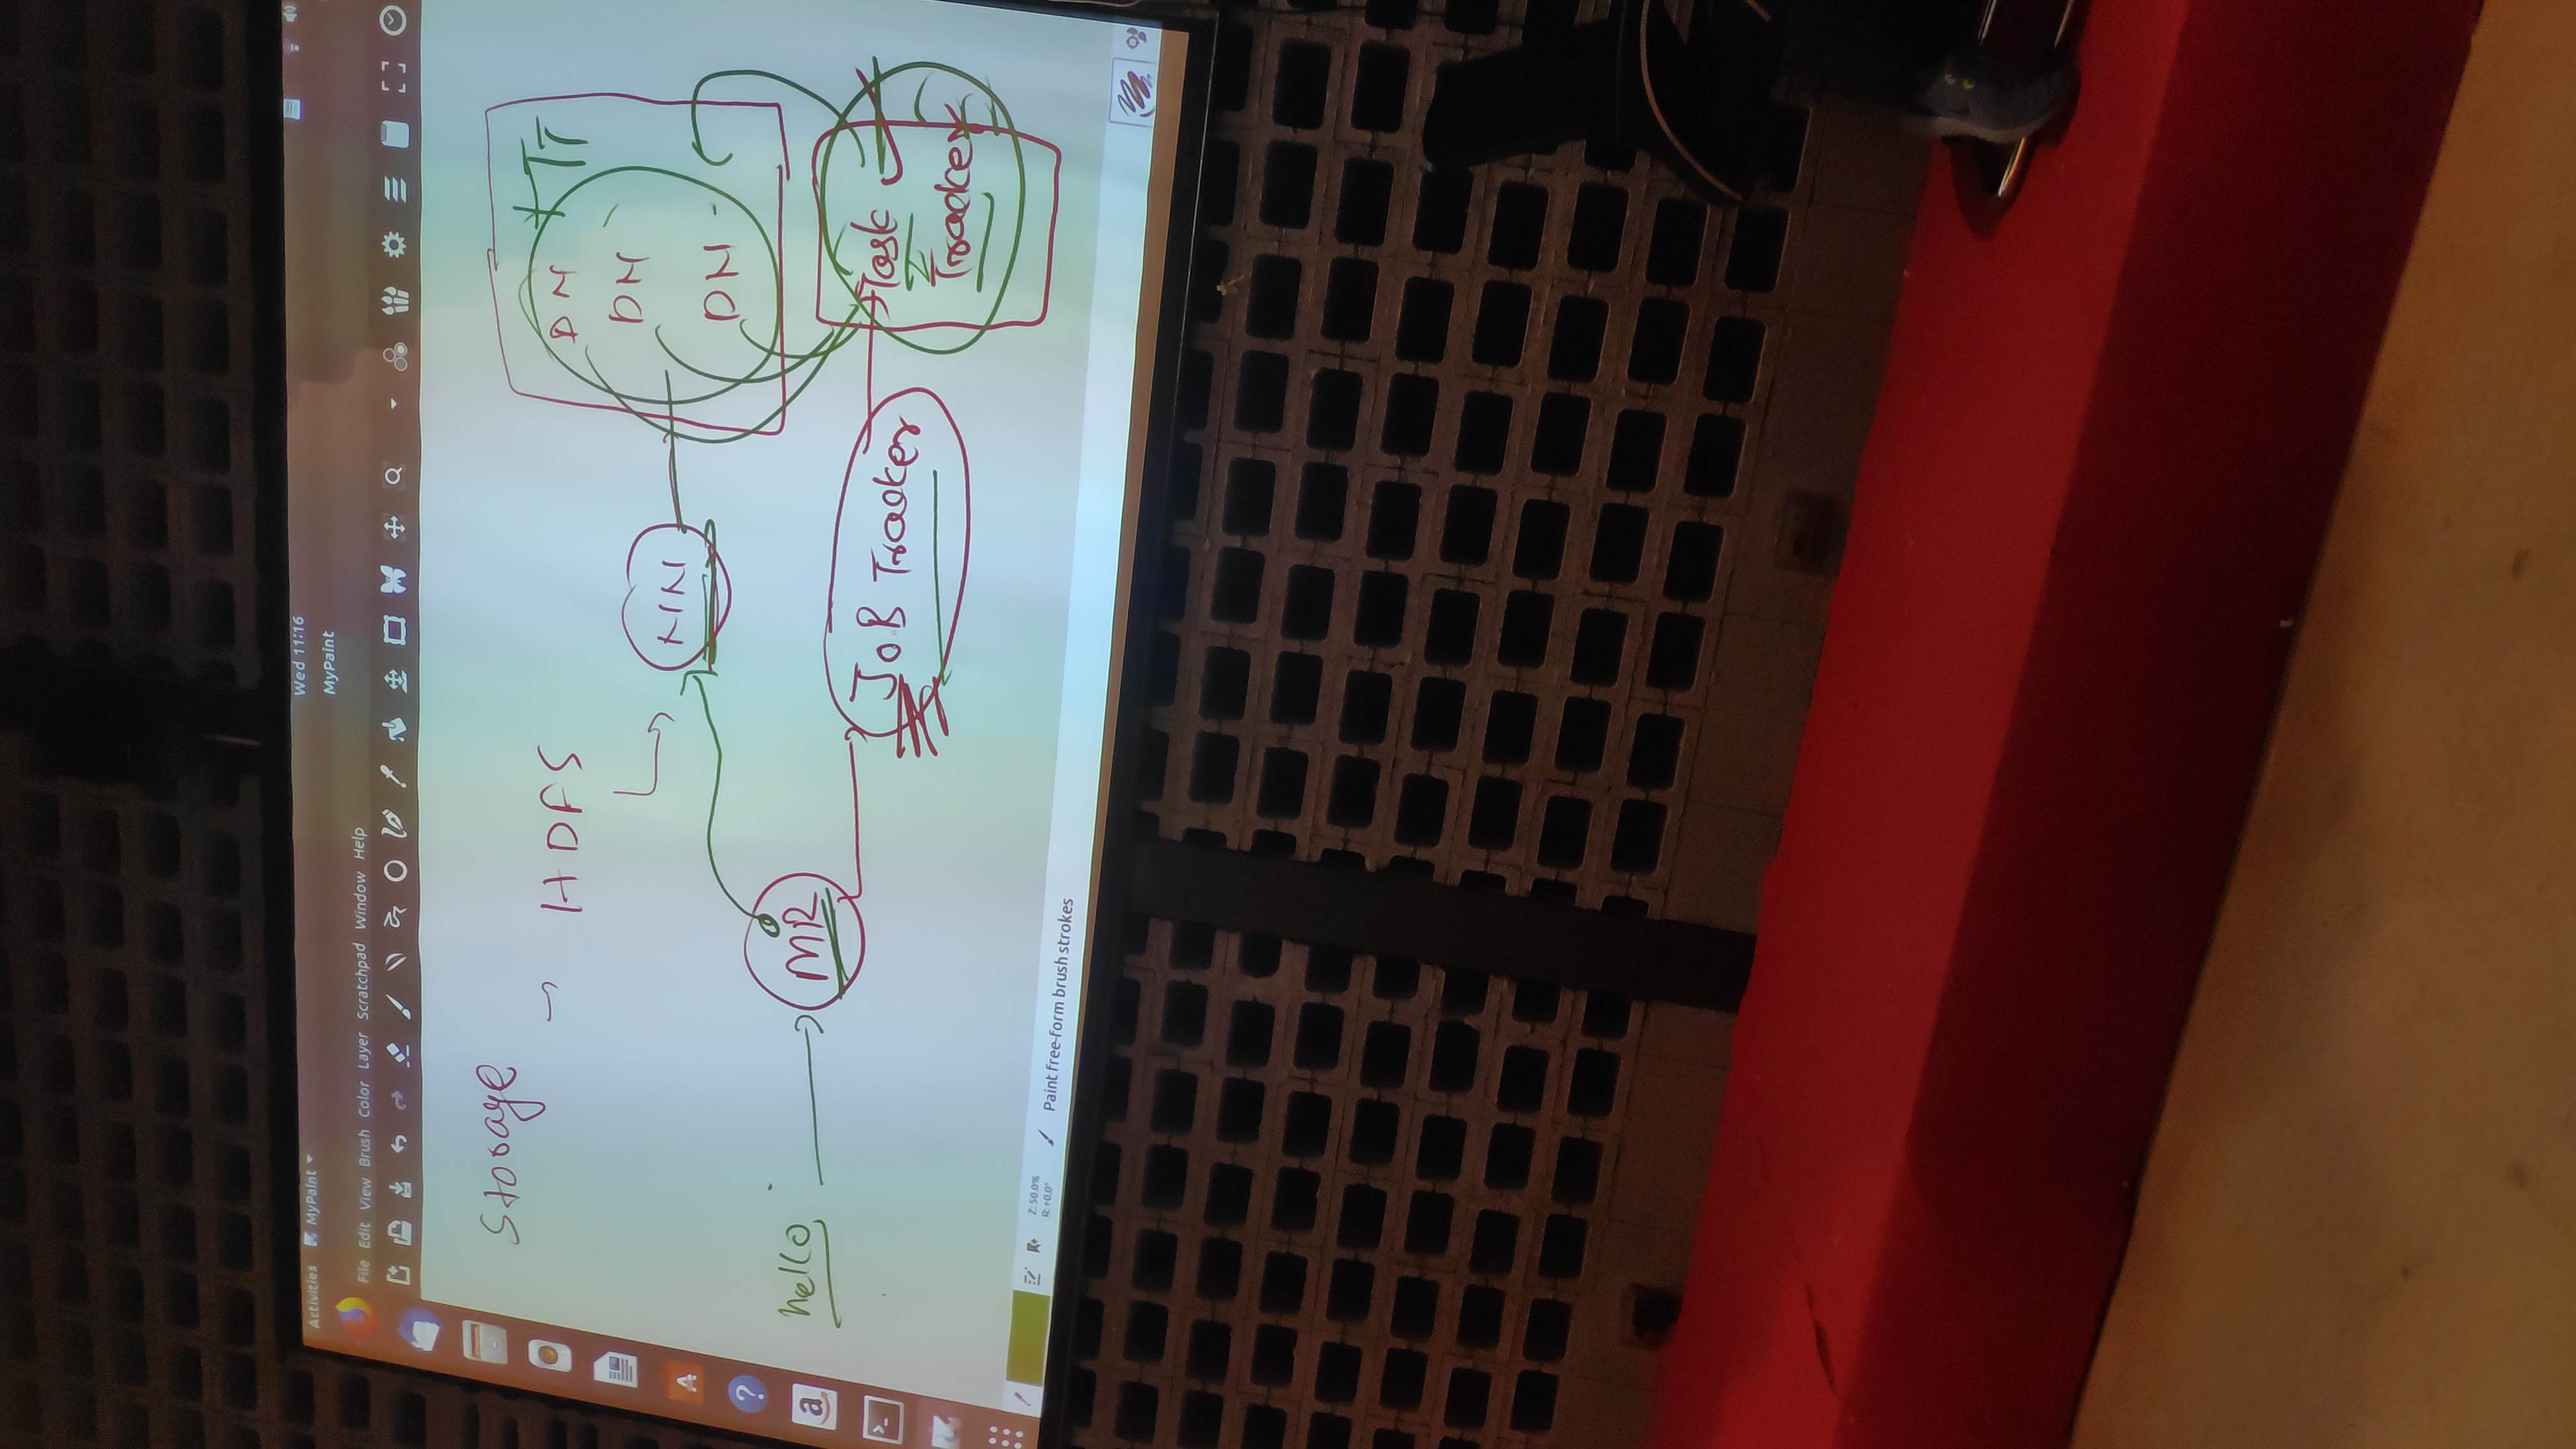 Wed 11:16
Activities MyPaint
MyPaint
File Edit View Brush Color Layer Scratchpad Window Help
Storage
HDFS
DN + TT
DN
DN
NN
hello
MR
JOB Tracker
Task
Tracker
Z: 50.0%
R: +0.0°
Paint free-form brush strokes